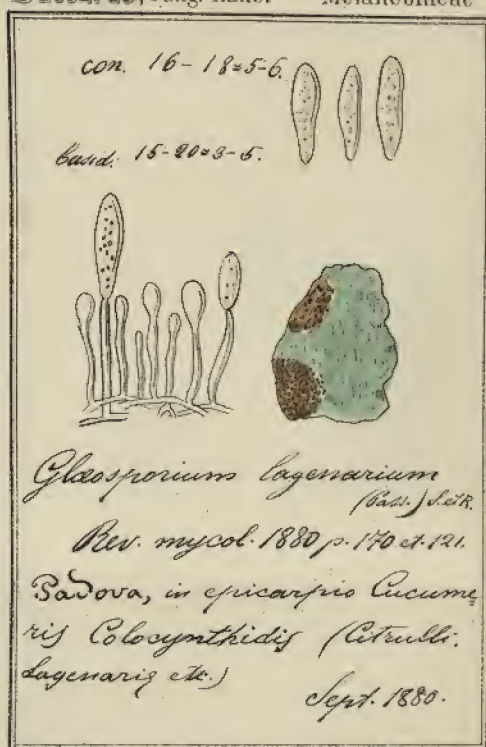 Fung. Melanconieae
con. 16-18=5-6.
basid. 15-20=3-5.
Glœosporium lagenarium
(Pass.) S. et R.
Rev. mycol. 1880 p. 170 et 121.
Padova, in epicarpio Cucume=
ris Colocynthidis (Citrulli,
Lagenarię etc.)
Sept. 1880.